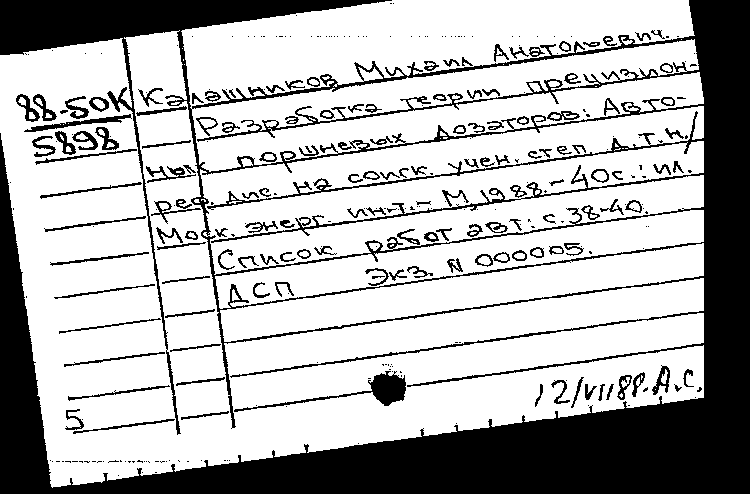 88-50К
5898
Калашников Михаил Анатольевич.
Разработка теории прецизион-
ных поршневых дозаторов: Авто-
реф. дис. на соиск. учен. степ. д.т.н./
Моск. энерг. ин-т.- М, 1988.-40с.: ил.
Список работ авт: с.38-40.
ДСП Экз. N 000005.
12/VII88. А.С.
5